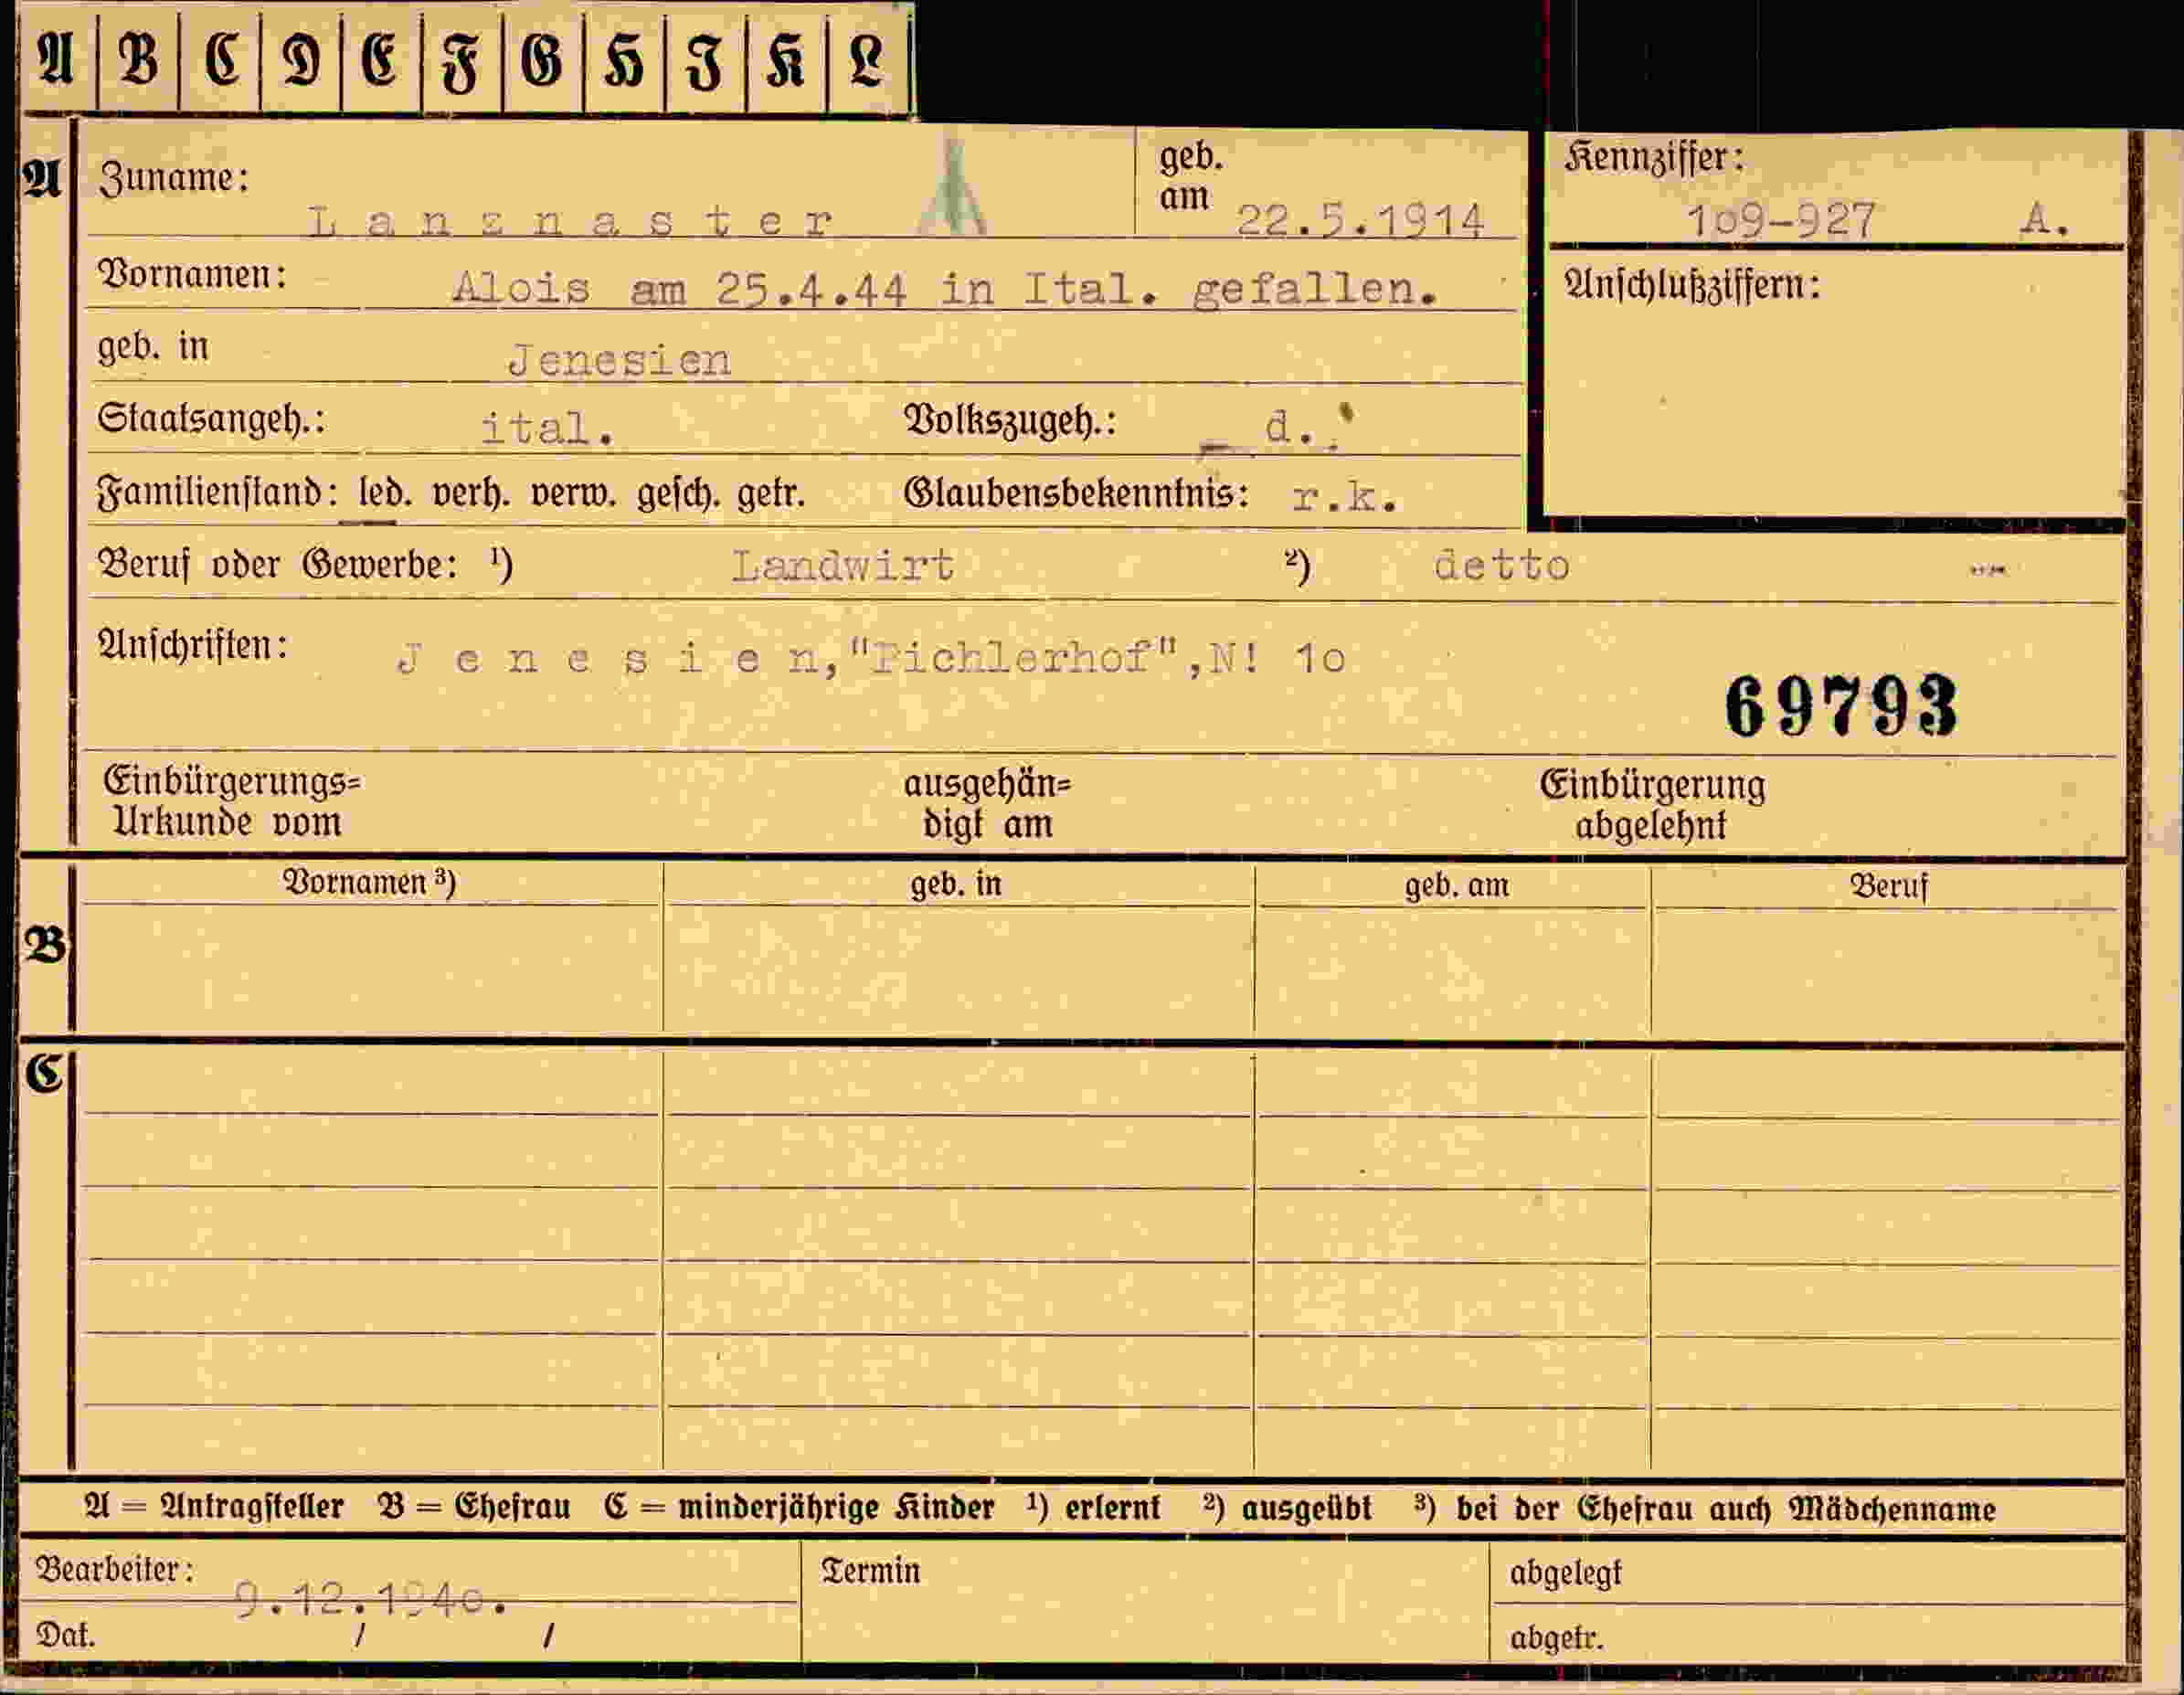 A B C D E F G H I K L
A Zuname: Lanznaster A geb. am 22.5.1914
Kennziffer: 1o9-927 A.
Vornamen: Alois am 25.4.44 in Ital. gefallen.
Anschlußziffern:
geb. in Jenesien
Staatsangeh.: ital. Volkszugeh.: d.
Familienstand: led. verh. verw. gesch. getr. Glaubensbekenntnis: r.k.
Beruf oder Gewerbe: ¹) Landwirt ²) detto
Anschriften: Jenesien,"Pichlerhof",N! 1o
69793
Einbürgerungs=
Urkunde vom
ausgehän=
digt am
Einbürgerung
abgelehnt
Vornamen ³) geb. in geb. am Beruf
B
C
A = Antragsteller B = Ehefrau C = minderjährige Kinder ¹) erlernt ²) ausgeübt ³) bei der Ehefrau auch Mädchenname
Bearbeiter: 9.12.194o.
Dat. / /
Termin
abgelegt
abgetr.